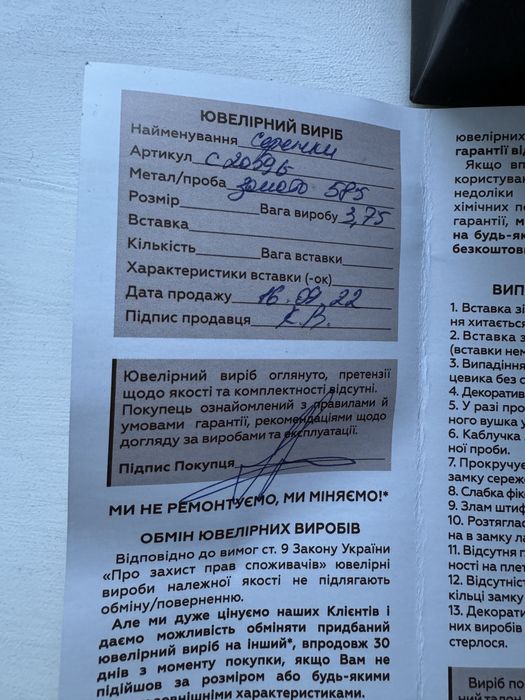 ЮВЕЛІРНИЙ ВИРІБ
Найменування Сережки
Артикул С 20596
Метал/проба золото 585
Розмір Вага виробу 3,75
Вставка
Кількість Вага вставки
Характеристики вставки (-ок)
Дата продажу 16.09.22
Підпис продавця К.В.
Ювелірний виріб оглянуто, претензії
щодо якості та комплектності відсутні.
Покупець ознайомлений з правилами й
умовами гарантії, рекомендаціями щодо
догляду за виробами та експлуатації.
Підпис Покупця
МИ НЕ РЕМОНТУЄМО, МИ МІНЯЄМО!*
ОБМІН ЮВЕЛІРНИХ ВИРОБІВ
Відповідно до вимог ст. 9 Закону України
«Про захист прав споживачів» ювелірні
вироби належної якості не підлягають
обміну/поверненню.
Але ми дуже цінуємо наших Клієнтів і
даємо можливість обміняти придбаний
ювелірний виріб на інший*, впродовж 30
днів з моменту покупки, якщо Вам не
підійшов за розміром або будь-якими
зовнішніми характеристиками.
ювелірних
гарантії ві
Якщо вп
користува
недоліки
хімічних п
гарантії, м
на будь-як
безкоштов
ВИП
1. Вставка зі
ня хитається
2. Вставка з
(вставки нем
3. Випадіння
цевика без с
4. Декоратив
5. У разі про
ного вушка у
6. Каблучка
ної проби.
7. Прокручує
замку сереж
8. Слабка фік
9. Злам штиф
10. Розтягла
на в замку ла
11. Відсутня г
ності на плет
12. Відсутніст
кільці замку
13. Декорати
них виробів
стерлося.
Виріб по